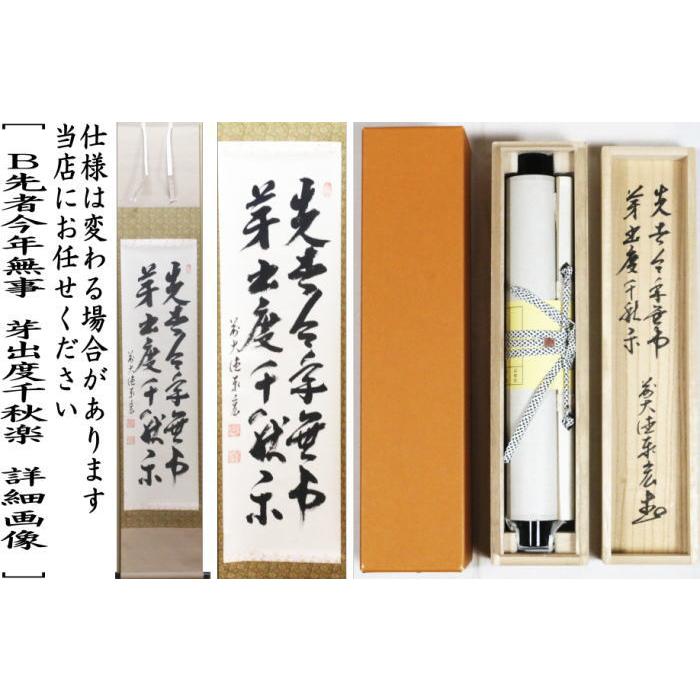 仕様は変わる場合があります
当店にお任せください
[ B先者今年無事 芽出度千秋楽 詳細画像 ]
先者今年無事
芽出度千秋楽
先者今年無事
芽出度千秋楽
先者今年無事
芽出度千秋楽